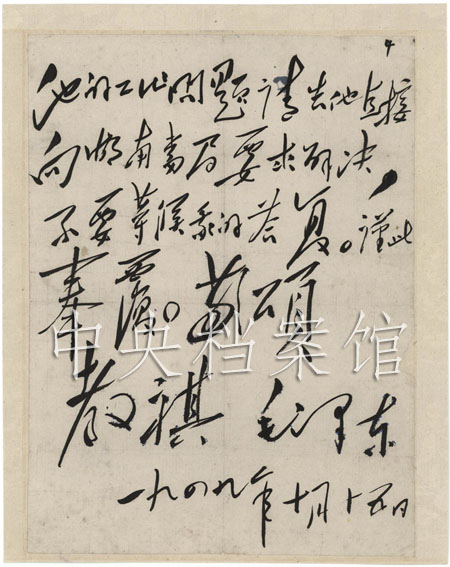 4
他的工作問題请告他直接
向湖南當局要求解决，
不要等候我的答复。谨此
奉覆。敬颂
教祺 毛泽东
一九四九年十月十五日
中央档案馆